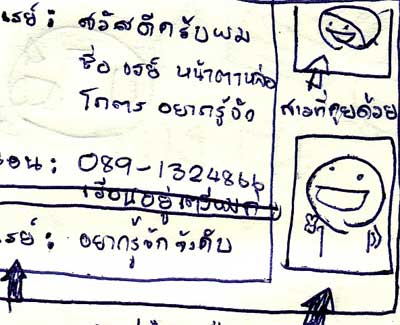 เรย์ : สวัสดีครับผม
ชื่อ เรย์ หน้าตาหล่อ
โคตร อยากรู้จัง
สาวที่คุยด้วย
: 089-1324866
เรียนอยู่
เรย์ : อยากรู้จักจังคับ